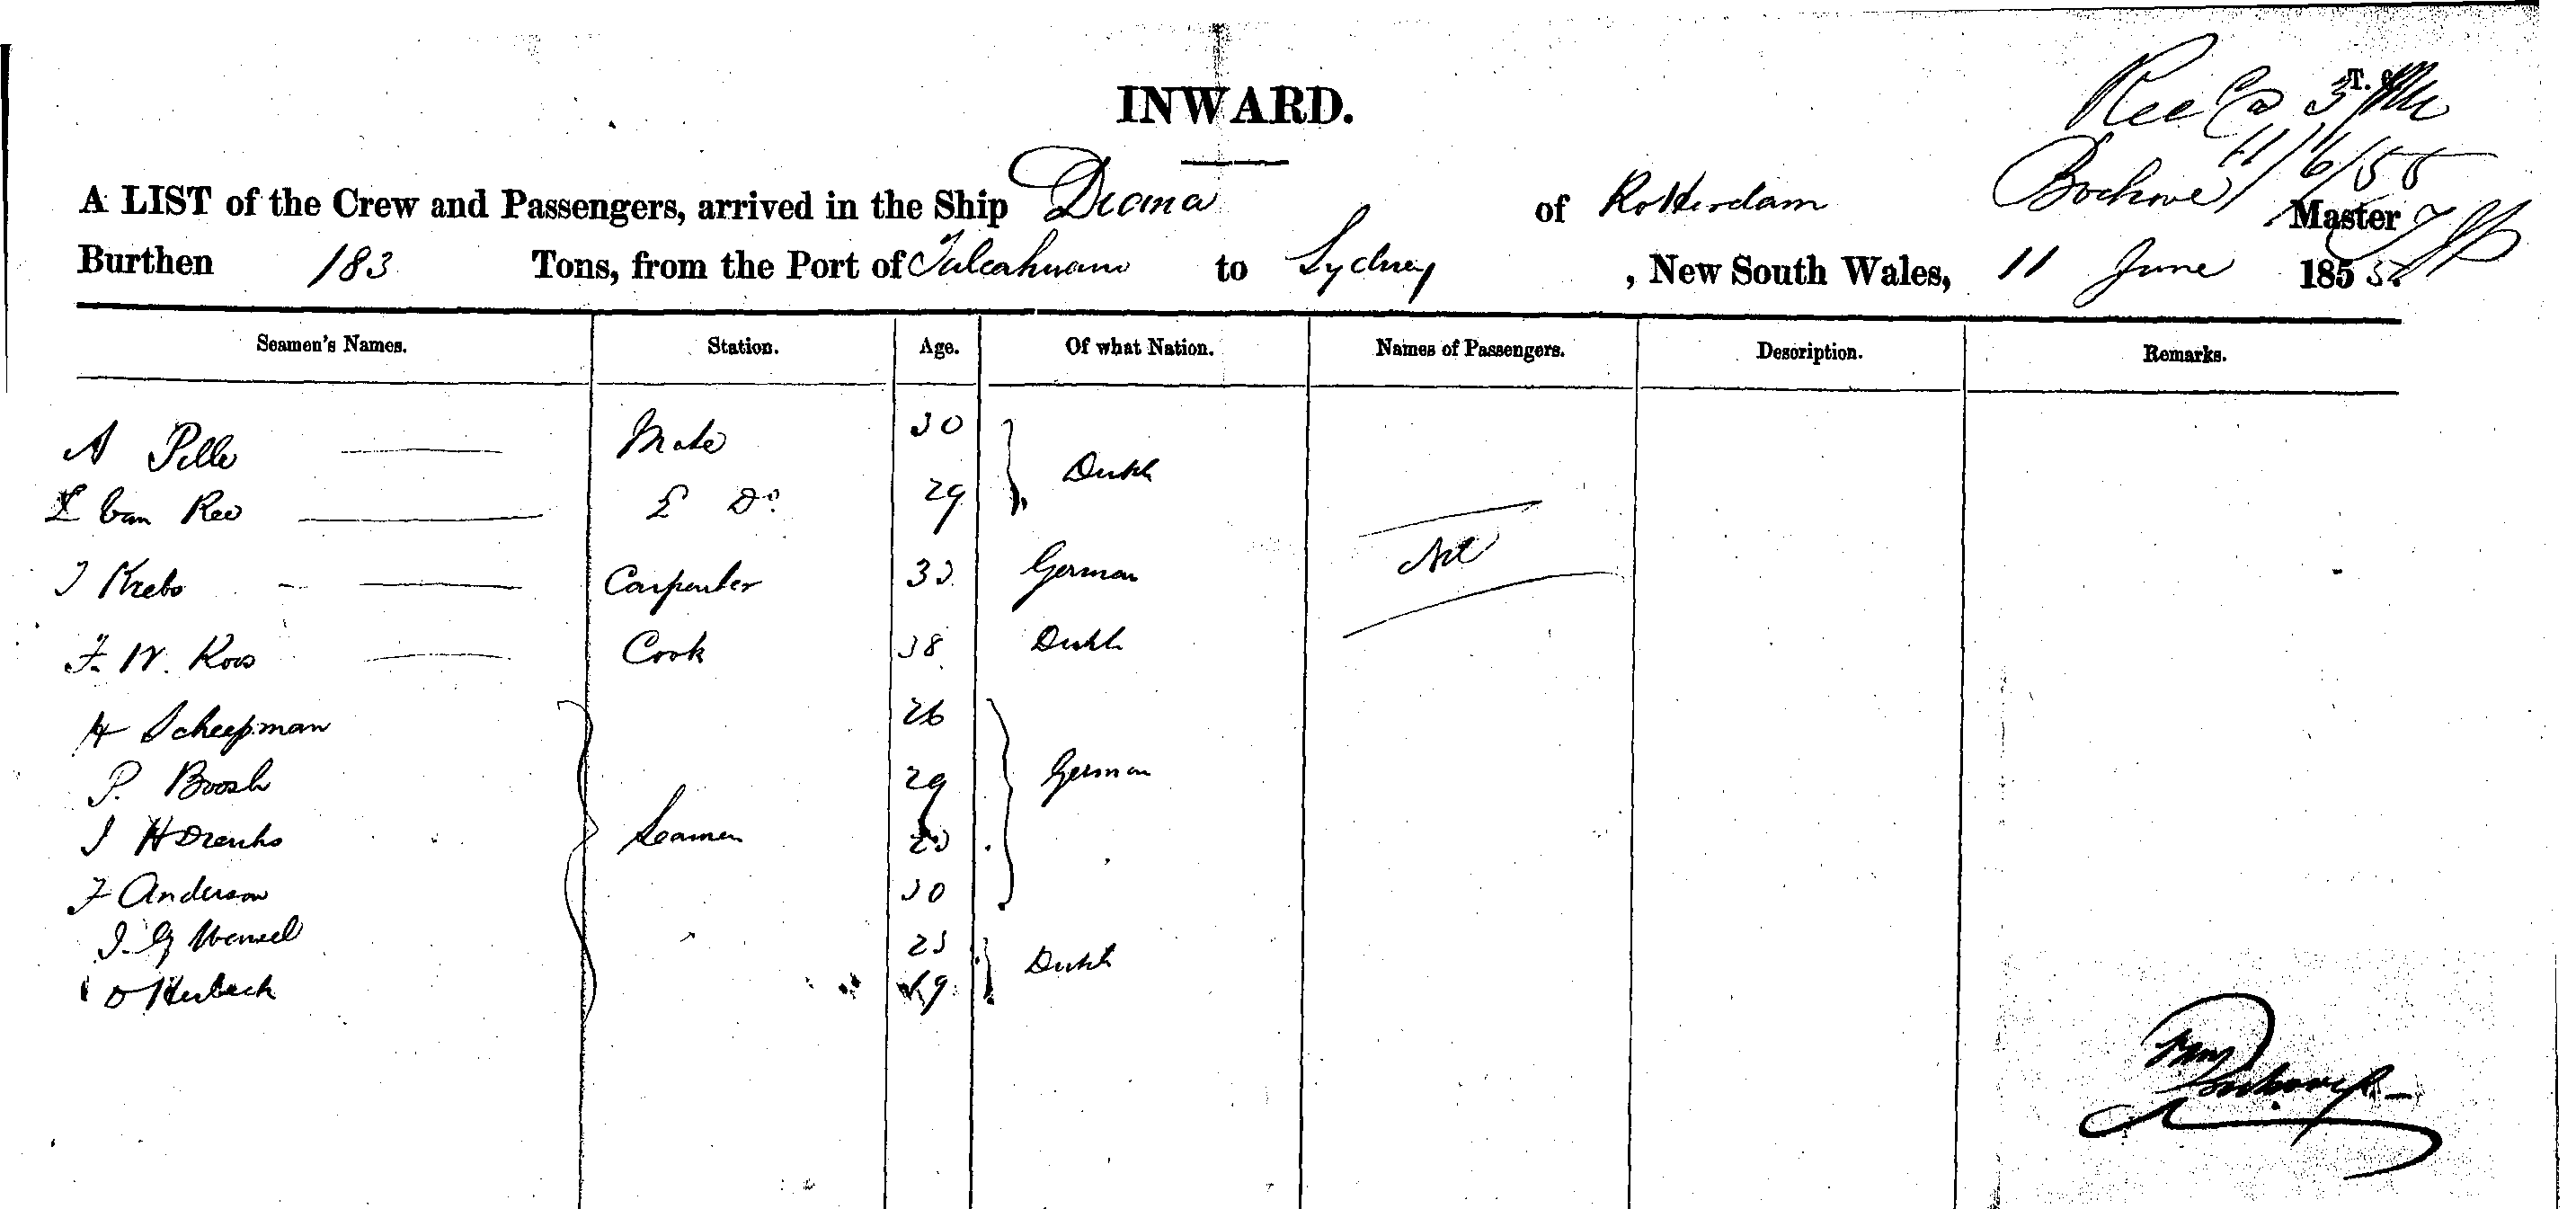 INWARD.
11/6/55
A LIST of the Crew and Passengers, arrived in the Ship Diana of Rotterdam Bochove Master
Burthen 183 Tons, from the Port of Talcahuano to Sydney, New South Wales, 11 June 1855.
Seamen's Names. Station. Age. Of what Nation. Names of Passengers. Description. Remarks.
A Pille Mate 30
Dutch
L van Ree 2 Do 29
Nil
J Krebs Carpenter 33 German
F. W. Roos Cook 38 Dutch
H Scheepman 26
P. Boosh 29 German
J H Drenks Seamen
F Anderson 30
J. G Wensel 23
Dutch
O Herbeck 19